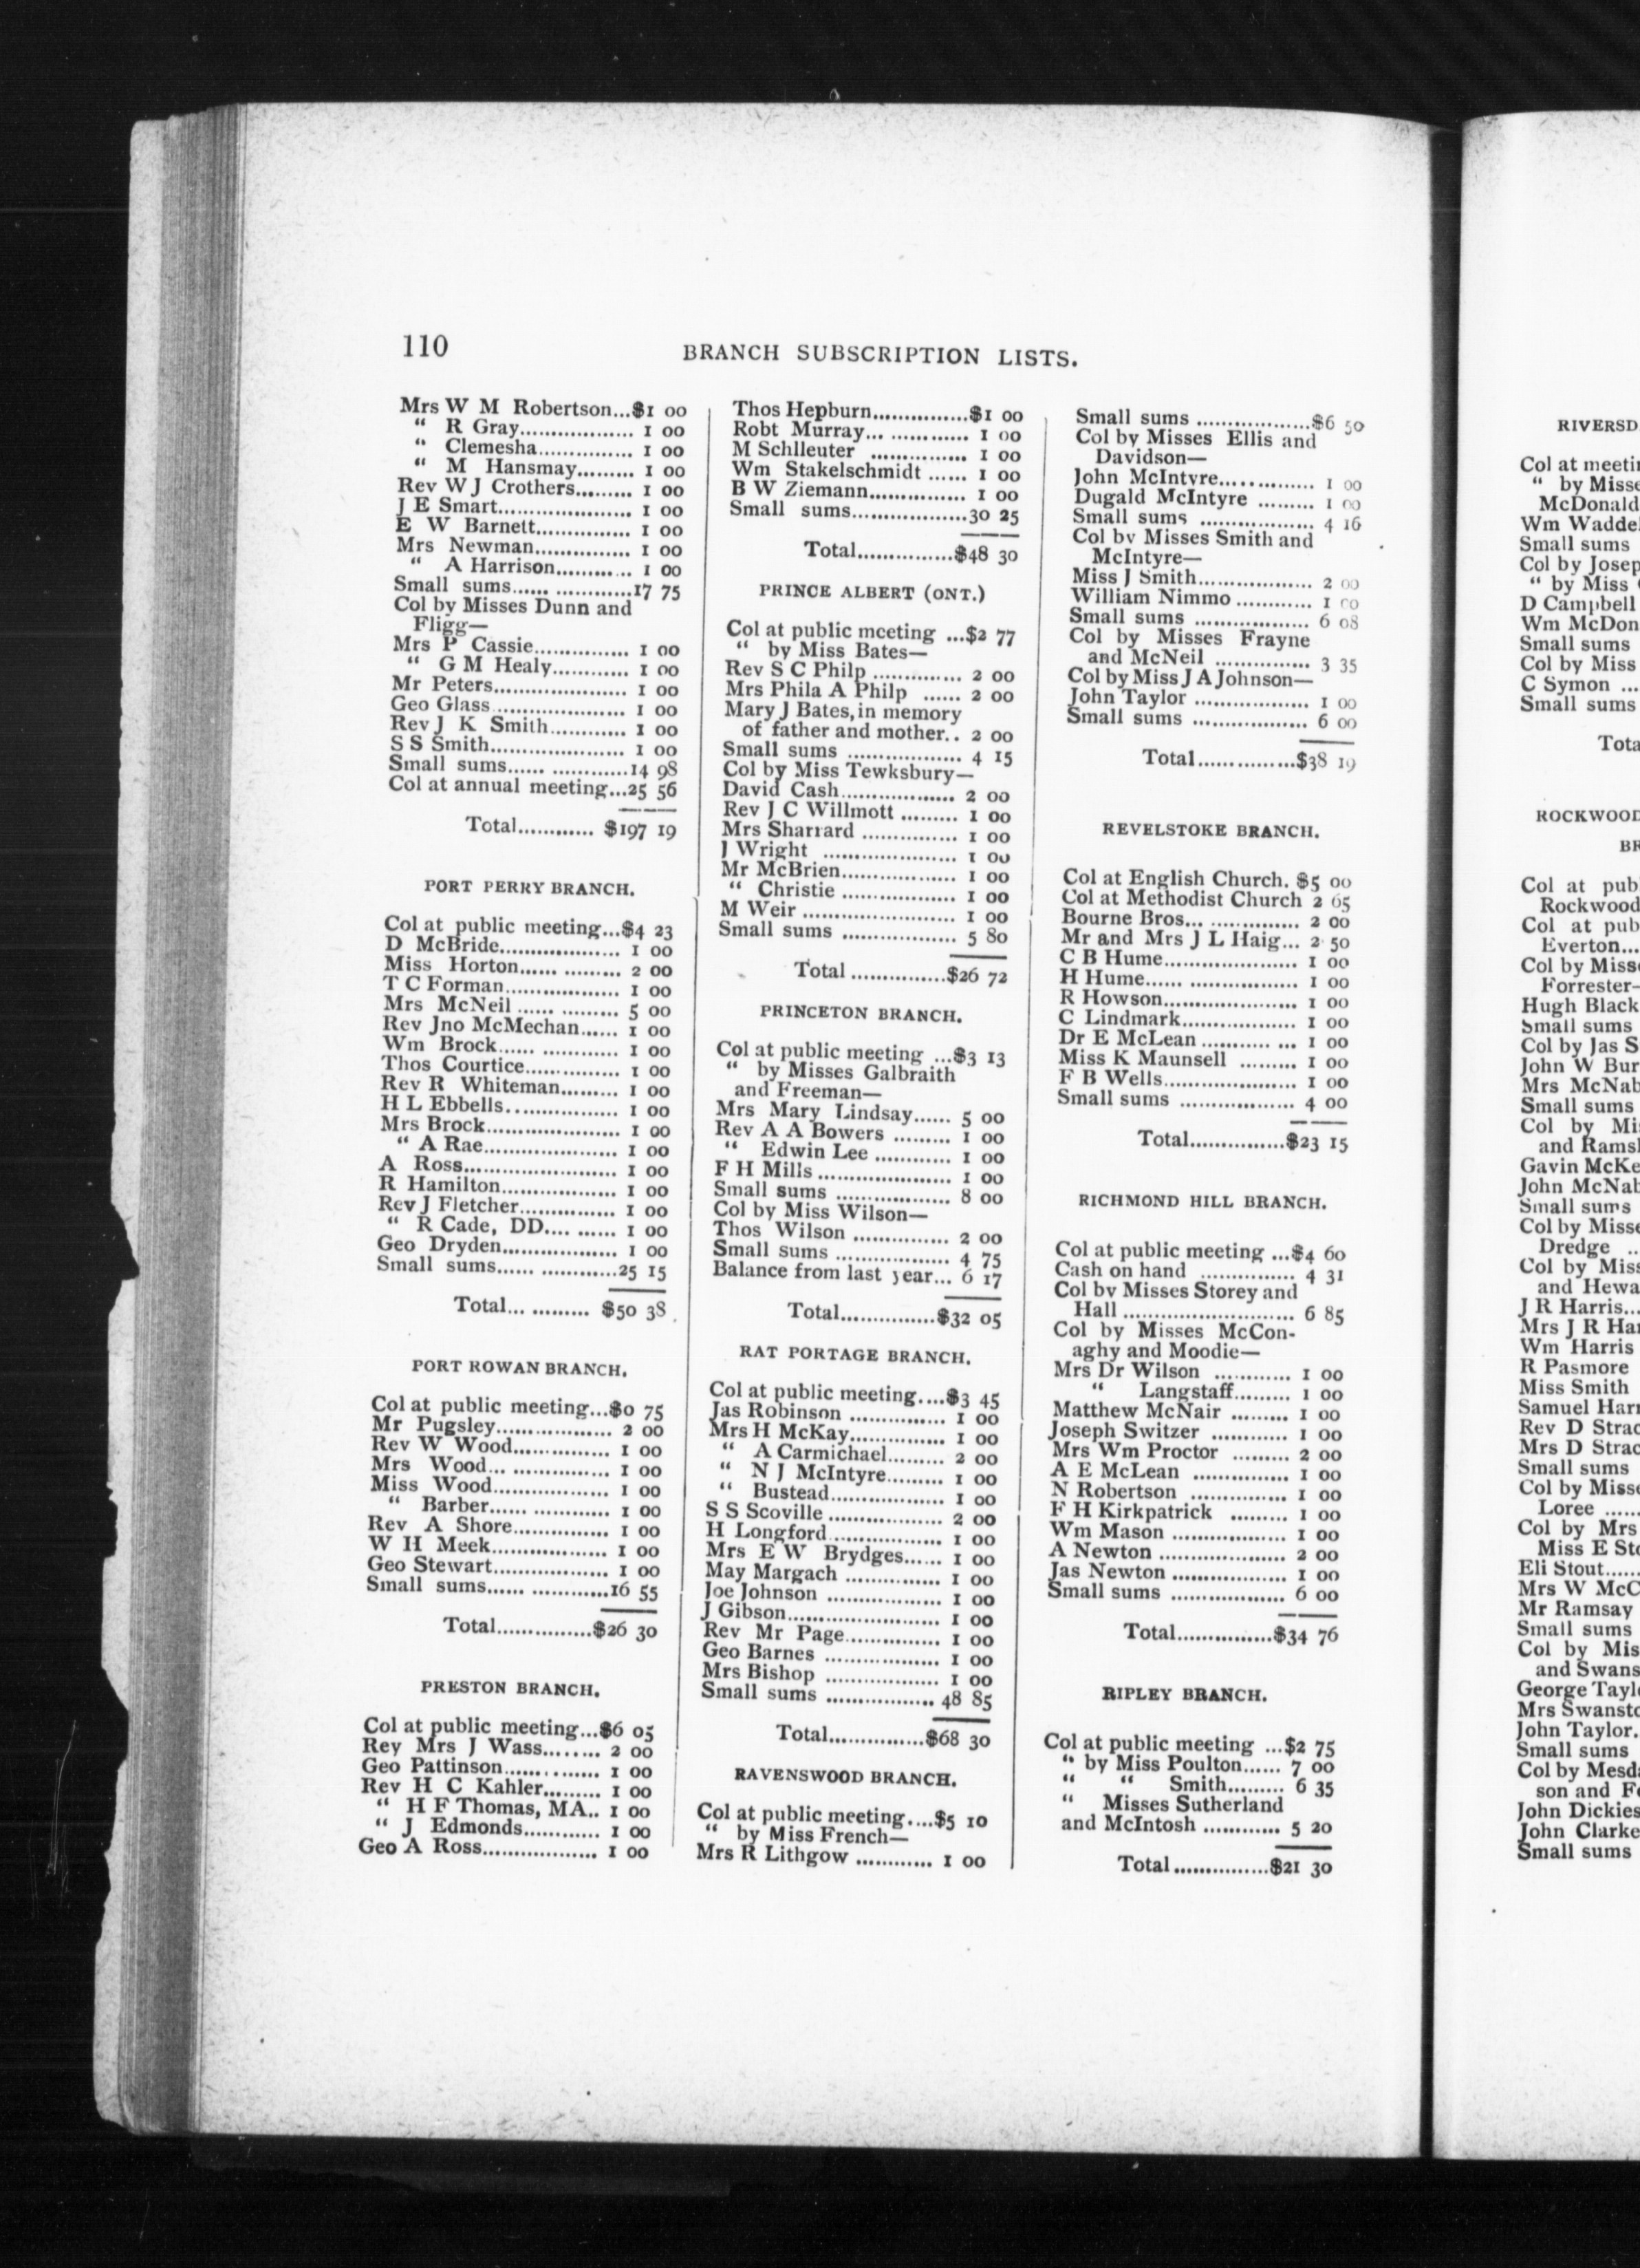 110
BRANCH SUBSCRIPTION LISTS.
Mrs W M Robertson...$1 00
" R Gray.................. 1 00
" Clemesha............... 1 00
" M Hansmay......... 1 00
Rev W J Crothers......... 1 00
J E Smart..................... 1 00
E W Barnett............... 1 00
Mrs Newman............... 1 00
" A Harrison............ 1 00
Small sums...... ............17 75
Col by Misses Dunn and
Fligg—
Mrs P Cassie............... 1 00
" G M Healy............ 1 00
Mr Peters..................... 1 00
Geo Glass..................... 1 00
Rev J K Smith............ 1 00
S S Smith..................... 1 00
Small sums...... ............14 98
Col at annual meeting...25 56
Total............ $197 19
PORT PERRY BRANCH.
Col at public meeting...$4 23
D McBride................... 1 00
Miss Horton...... ......... 2 00
T C Forman.................. 1 00
Mrs McNeil ...... ......... 5 00
Rev Jno McMechan...... 1 00
Wm Brock...... ............ 1 00
Thos Courtice............... 1 00
Rev R Whiteman......... 1 00
H L Ebbells.................. 1 00
Mrs Brock..................... 1 00
" A Rae..................... 1 00
A Ross........................ 1 00
R Hamilton.................. 1 00
Rev J Fletcher............... 1 00
" R Cade, DD.... ...... 1 00
Geo Dryden.................. 1 00
Small sums...... ............25 15
Total... ......... $50 38
PORT ROWAN BRANCH.
Col at public meeting...$0 75
Mr Pugsley.................. 2 00
Rev W Wood............... 1 00
Mrs Wood... ............... 1 00
Miss Wood.................. 1 00
" Barber...... ............ 1 00
Rev A Shore............... 1 00
W H Meek.................. 1 00
Geo Stewart.................. 1 00
Small sums...... ............16 55
Total...............$26 30
PRESTON BRANCH.
Col at public meeting...$6 05
Rev Mrs J Wass......... 2 00
Geo Pattinson............... 1 00
Rev H C Kahler......... 1 00
" H F Thomas, MA.. 1 00
" J Edmonds............ 1 00
Geo A Ross.................. 1 00
Thos Hepburn...............$1 00
Robt Murray... ............ 1 00
M Schlleuter ............... 1 00
Wm Stakelschmidt ...... 1 00
B W Ziemann............... 1 00
Small sums..................30 25
Total...............$48 30
PRINCE ALBERT (ONT.)
Col at public meeting ...$2 77
" by Miss Bates—
Rev S C Philp .............. 2 00
Mrs Phila A Philp ...... 2 00
Mary J Bates, in memory
of father and mother.. 2 00
Small sums ................. 4 15
Col by Miss Tewksbury—
David Cash.................. 2 00
Rev J C Willmott ......... 1 00
Mrs Sharrard ............... 1 00
J Wright ..................... 1 00
Mr McBrien.................. 1 00
" Christie .................. 1 00
M Weir ........................ 1 00
Small sums .................. 5 80
Total ...............$26 72
PRINCETON BRANCH.
Col at public meeting ...$3 13
" by Misses Galbraith
and Freeman—
Mrs Mary Lindsay...... 5 00
Rev A A Bowers ......... 1 00
" Edwin Lee ............ 1 00
F H Mills ..................... 1 00
Small sums .................. 8 00
Col by Miss Wilson—
Thos Wilson ............... 2 00
Small sums .................. 4 75
Balance from last year... 6 17
Total...............$32 05
RAT PORTAGE BRANCH.
Col at public meeting....$3 45
Jas Robinson ............... 1 00
Mrs H McKay............... 1 00
" A Carmichael......... 2 00
" N J McIntyre......... 1 00
" Bustead.................. 1 00
S S Scoville .................. 2 00
H Longford.................. 1 00
Mrs E W Brydges...... 1 00
May Margach ............... 1 00
Joe Johnson .................. 1 00
J Gibson........................ 1 00
Rev Mr Page............... 1 00
Geo Barnes .................. 1 00
Mrs Bishop .................. 1 00
Small sums ................. 48 85
Total...............$68 30
RAVENSWOOD BRANCH.
Col at public meeting....$5 10
" by Miss French—
Mrs R Lithgow ............ 1 00
Small sums ..................$6 50
Col by Misses Ellis and
Davidson—
John McIntyre............... 1 00
Dugald McIntyre ......... 1 00
Small sums .................. 4 16
Col by Misses Smith and
McIntyre—
Miss J Smith.................. 2 00
William Nimmo ............ 1 00
Small sums .................. 6 08
Col by Misses Frayne
and McNeil ............... 3 35
Col by Miss J A Johnson—
John Taylor .................. 1 00
Small sums .................. 6 00
Total...............$38 19
REVELSTOKE BRANCH.
Col at English Church. $5 00
Col at Methodist Church 2 65
Bourne Bros... .............. 2 00
Mr and Mrs J L Haig... 2 50
C B Hume..................... 1 00
H Hume...... ................. 1 00
R Howson..................... 1 00
C Lindmark.................. 1 00
Dr E McLean ........... ... 1 00
Miss K Maunsell ......... 1 00
F B Wells..................... 1 00
Small sums .................. 4 00
Total...............$23 15
RICHMOND HILL BRANCH.
Col at public meeting ...$4 60
Cash on hand ............... 4 31
Col by Misses Storey and
Hall ........................... 6 85
Col by Misses McCon-
aghy and Moodie—
Mrs Dr Wilson ............ 1 00
" Langstaff......... 1 00
Matthew McNair ......... 1 00
Joseph Switzer ............ 1 00
Mrs Wm Proctor ......... 2 00
A E McLean ............... 1 00
N Robertson ............... 1 00
F H Kirkpatrick ......... 1 00
Wm Mason .................. 1 00
A Newton .................... 2 00
Jas Newton .................. 1 00
Small sums .................. 6 00
Total...............$34 76
RIPLEY BRANCH.
Col at public meeting ...$2 75
" by Miss Poulton...... 7 00
" " Smith......... 6 35
" Misses Sutherland
and McIntosh ............ 5 20
Total ...............$21 30
RIVERSD
Col at meetin
" by Misse
McDonald
Wm Waddel
Small sums
Col by Josep
" by Miss
D Campbell
Wm McDon
Small sums
Col by Miss
C Symon ...
Small sums
Tota
ROCKWOOD
BR
Col at pub
Rockwood
Col at pub
Everton...
Col by Misse
Forrester—
Hugh Black
Small sums
Col by Jas S
John W Bur
Mrs McNab
Small sums
Col by Mis
and Rams
Gavin McKe
John McNab
Small sums
Col by Misse
Dredge ..
Col by Miss
and Hewa
J R Harris...
Mrs J R Har
Wm Harris
R Pasmore
Miss Smith
Samuel Harr
Rev D Strac
Mrs D Strac
Small sums
Col by Misse
Loree ......
Col by Mrs
Miss E Sto
Eli Stout......
Mrs W McC
Mr Ramsay
Small sums
Col by Mis
and Swans
George Taylo
Mrs Swansto
John Taylor.
Small sums
Col by Mesda
son and Fe
John Dickies
John Clarke
Small sums